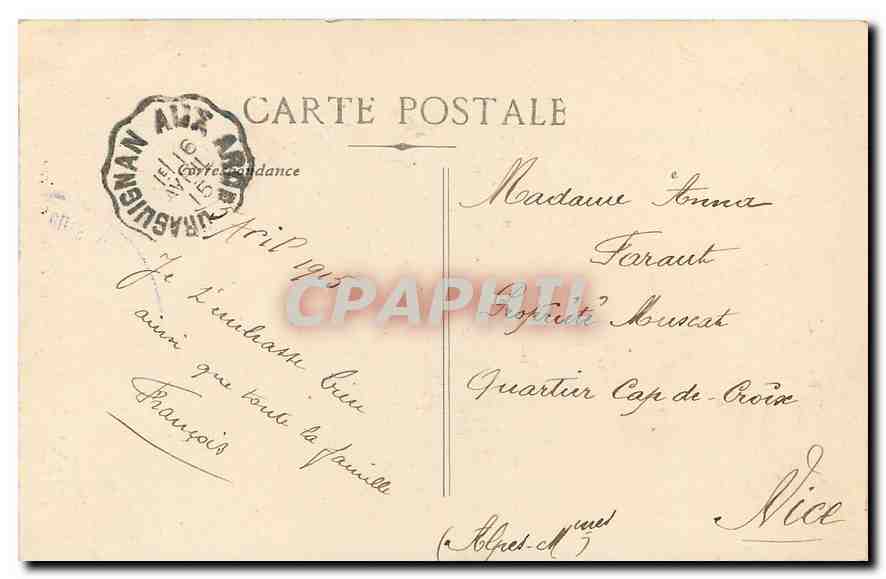 CARTE POSTALE
Correspondance
DRAGUIGNAN AUX ARCS
16
AVRIL
15
Avril 1915
Je t'embrasse bien
ainsi que toute la famille
François
Madame Anna
Faraut
Propriété Muscat
Quartier Cap de Croix
Nice
(Alpes-Mmes)
CPAPHIL